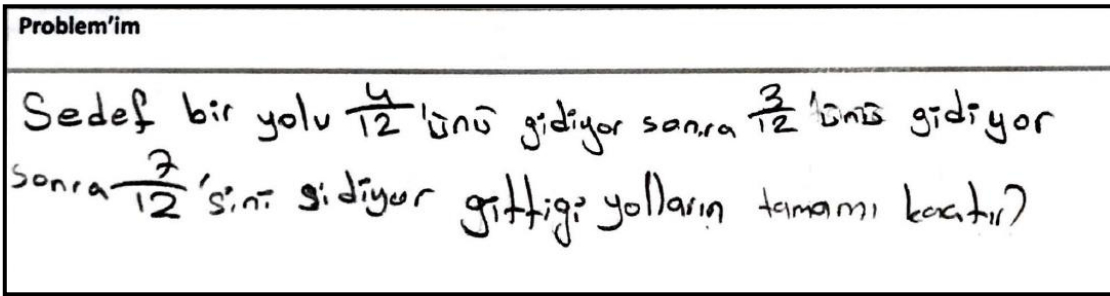 Problem'im
Sedef bir yolu 4/12'ünü gidiyor sonra 3/12'ünü gidiyor
sonra 7/12'sini gidiyor gittiği yolların tamamı kaçtır?